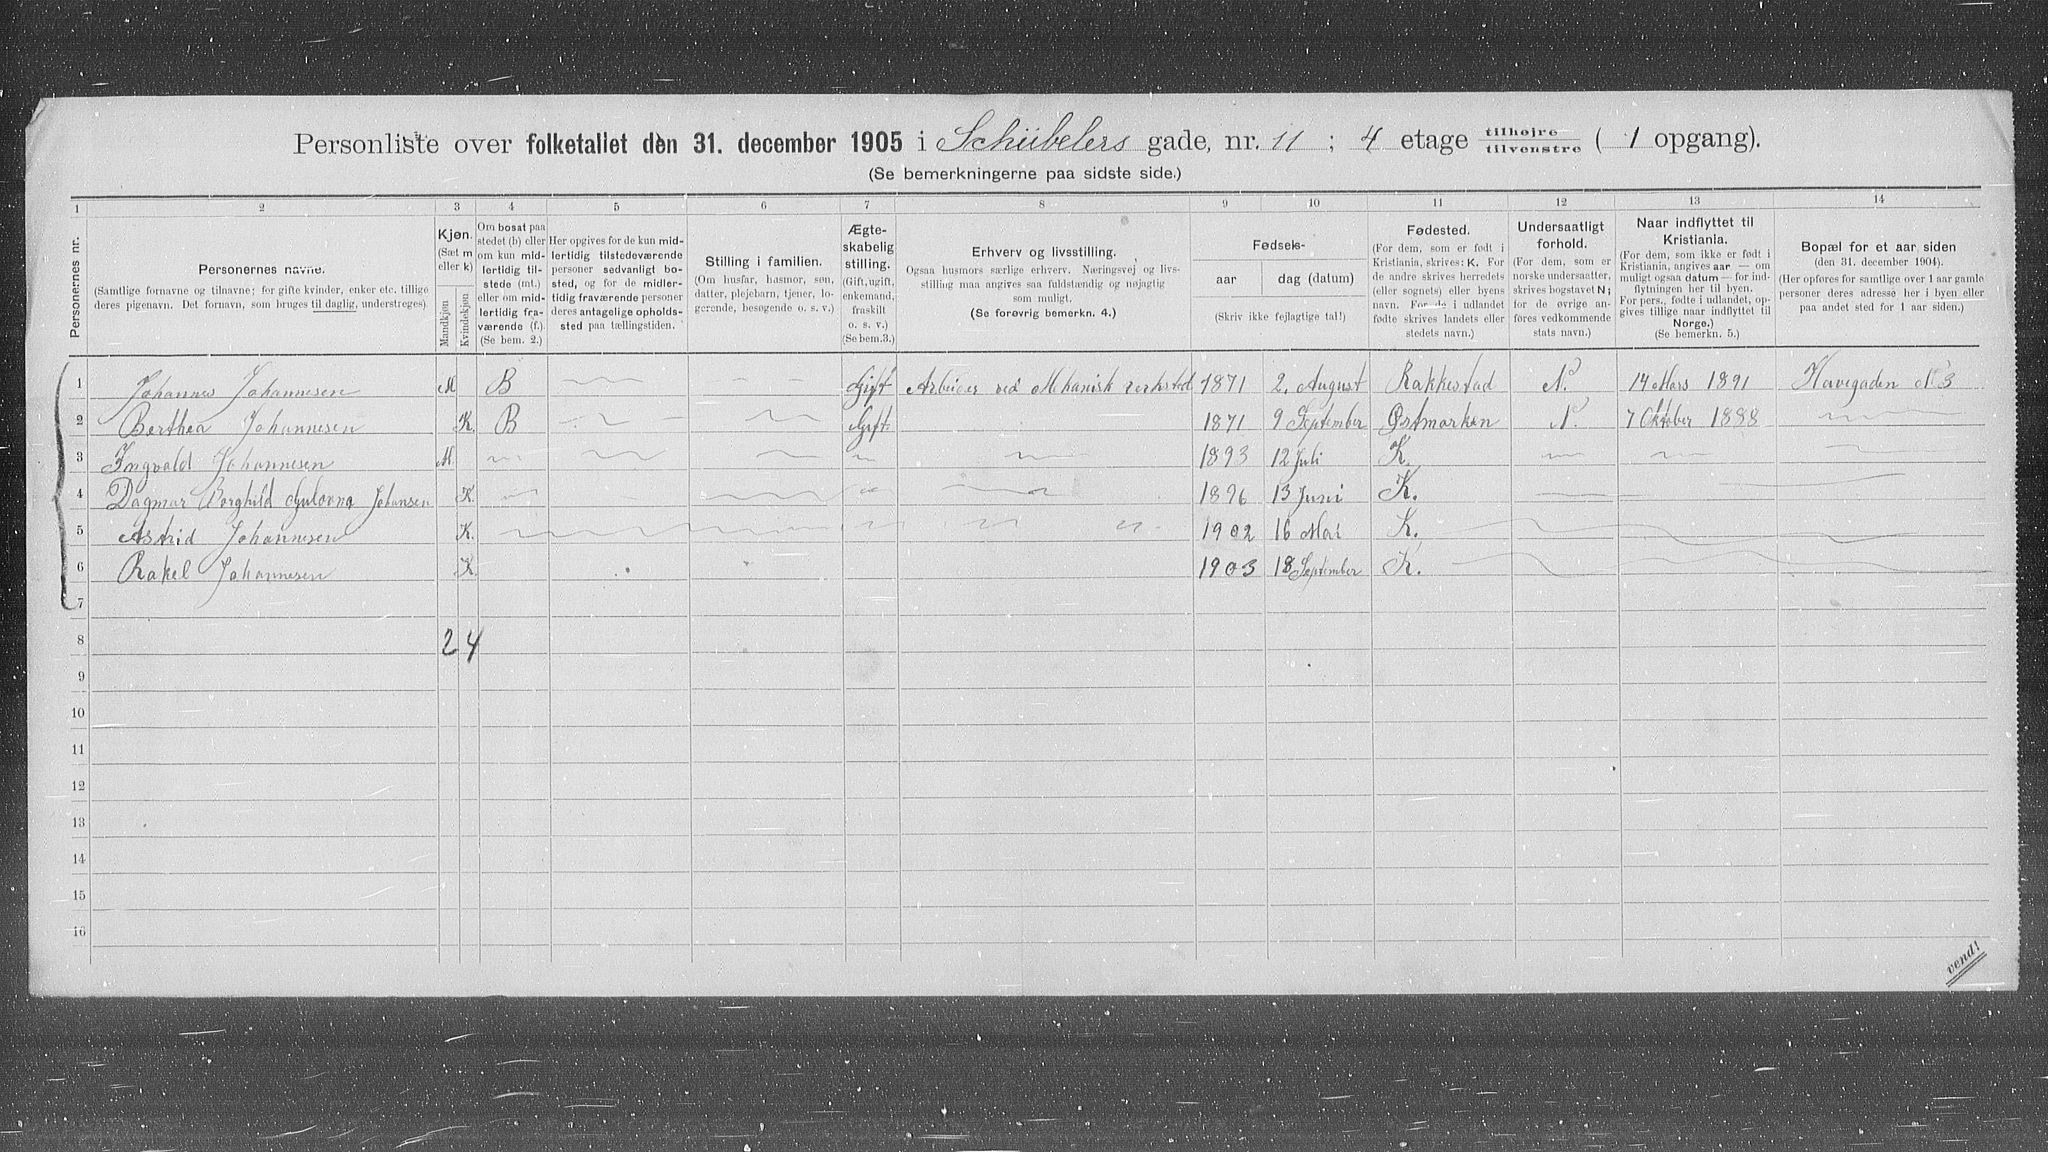 Personliste over folketallet den 31. december 1905 i Schübelers gade, nr. 11 ; 4 etage tilhøire tilvenstre ( 1 opgang).
(Se bemerkningerne paa sidste side.)
1 2 3 4 5 6 7 8 9 10 11 12 13 14
Personernes nr.
Personernes navne.
(Samtlige fornavne og tilnavne; for gifte kvinder, enker etc. tillige
deres pigenavn. Det fornavn, som bruges til daglig, understreges).
Kjøn.
(Sæt m
eller k)
Mandkjøn
Kvindekjøn
Om bosat paa
stedet (b) eller
om kun mid-
lertidig til-
stede (mt.)
eller om mid-
lertidig fra-
værende (f.).
(Se bem. 2.)
Her opgives for de kun mid-
lertidig tilstedeværende
personer sedvanligt bo-
sted, og for de midler-
tidig fraværende personer
deres antagelige opholds-
sted paa tællingstiden.
Stilling i familien.
(Om husfar, hasmor, søn,
datter, plejebarn, tjener, lo-
gerende, besøgende o. s. v.)
Ægte-
skabelig
stilling.
(Gift, ugift,
enkemand,
fraskilt
o. s. v.)
(Se bem.3.)
Erhverv og livsstilling.
Ogsaa husmors særlige erhverv. Næringsvej og livs-
stilling maa angives saa fuldstændig og nøjagtig
som muligt.
(Se forøvrig bemerkn. 4.)
Fødsels-
aar dag (datum)
(Skriv ikke fejlagtige tal!)
Fødested.
(For dem, som er født i
Kristiania, skrives: K. For
de andre skrives herredets
(eller sognets) eller byens
navn. For de i udlandet
fødte skrives landets eller
stedets navn.)
Undersaatligt
forhold.
(For dem, som er
norske undersaatter,
skrives bogstavet N;
for de øvrige an-
føres vedkommende
stats navn.)
Naar indflyttet til
Kristiania.
(For dem, som ikke er født i
Kristiania, angives aar — om
muligt ogsaa datum — for ind-
flytningen her til byen.
For pers., fødte i udlandet, op-
gives tillige naar indflyttet til
Norge.)
(Se bemerkn. 5.)
Bopæl for et aar siden
(den 31. december 1904).
(Her opføres for samtlige over 1 aar gamle
personer deres adresse her i byen eller
paa andet sted for 1 aar siden.)
1 Johannes Johannesen M B Gift Arbeider ved Mekanisk verksted 1871 2. August Rakkestad N. 14 Mars 1891 Havegaden N 3
2 Berthea Johannesen K. B Gift. 1871 9 September Østmarken N. 7 Oktober 1888
3 Ingvald Johannesen M. 1893 12 Juli K.
4 Dagmar Borghild Johansen K. 1896 13 Juni K.
5 Astrid Johannesen K. 1902 16 Mai K.
6 Rakel Johannesen K. 1903 18 September K.
7
8 2 4
9
10
11
12
13
14
15
16
vend!